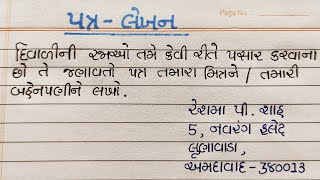 Page No.
પત્ર - લેખન
દિવાળીની રજાઓ તમે કેવી રીતે પસાર કરવાના
છો તે જણાવતો પત્ર તમારા મિત્રને / તમારી
બહેનપણીને લખો.
રેશમા પી. શાહ
5, નવરંગ ફ્લેટ
અમદાવાદ - 380013